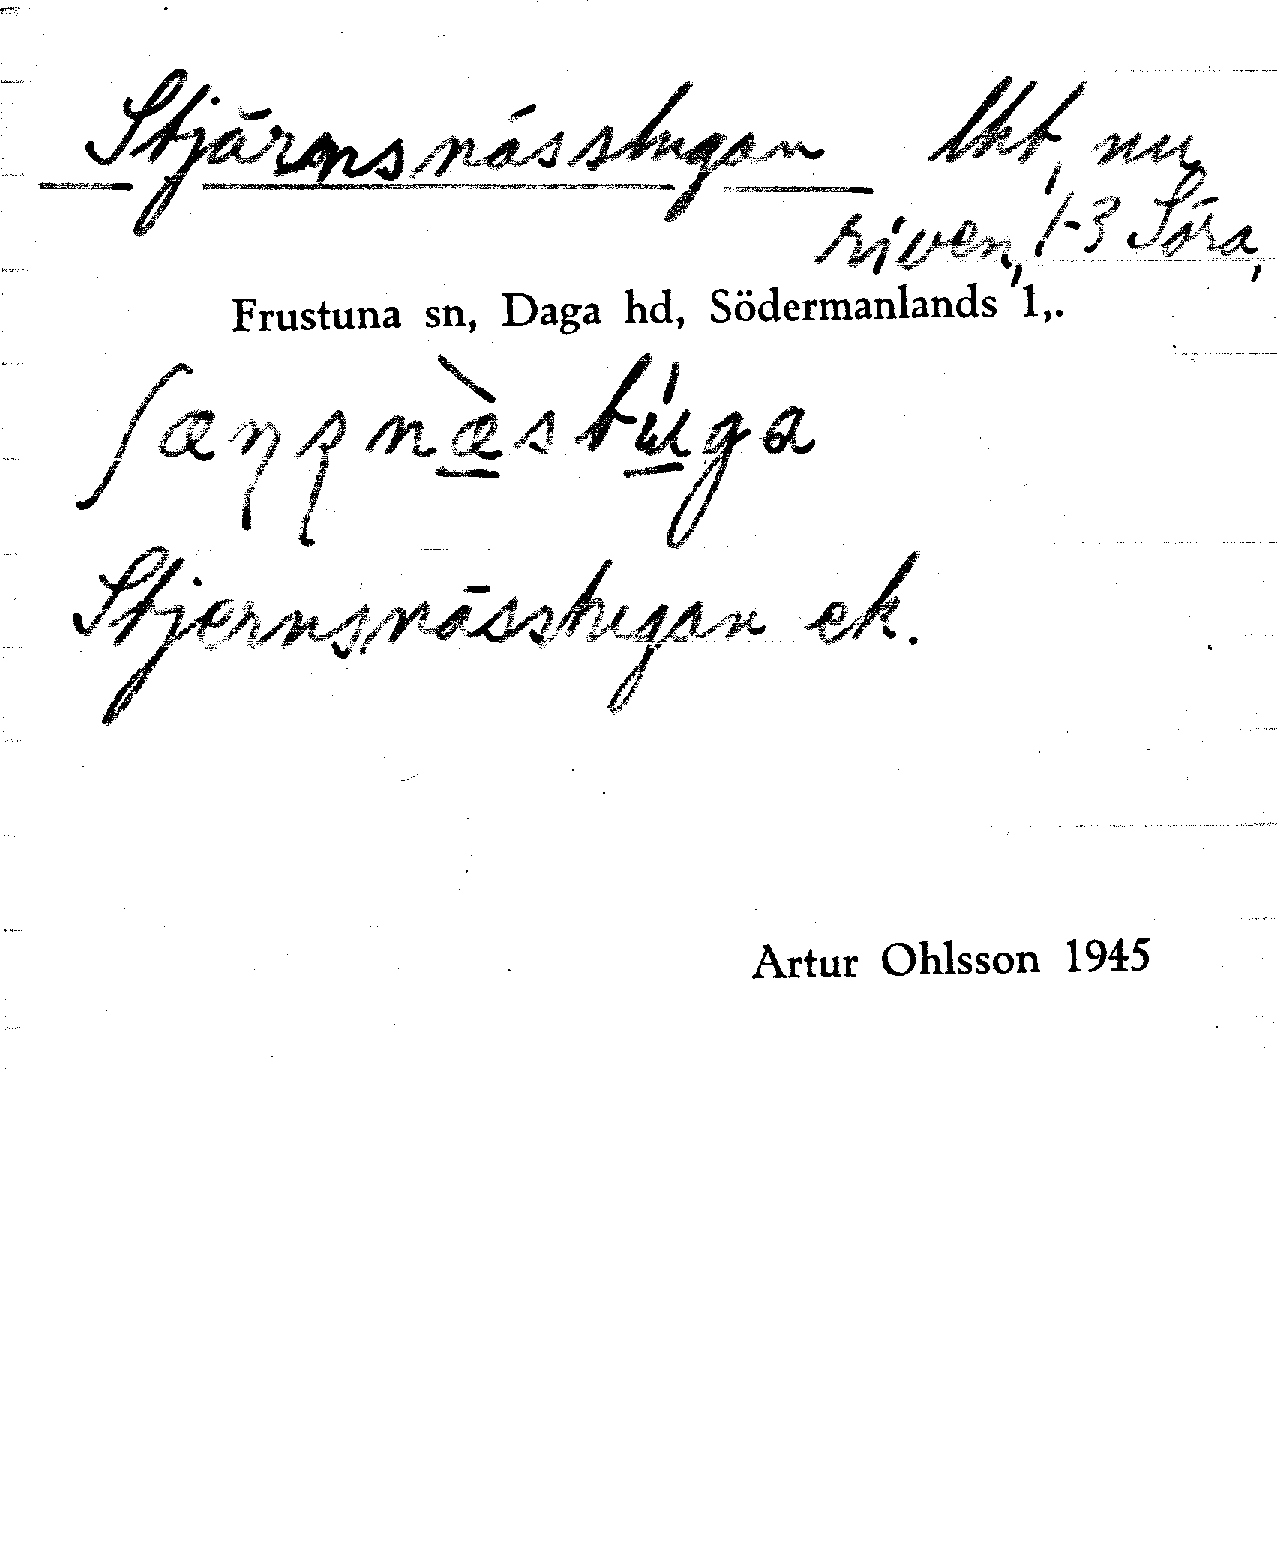 Stjärnsnässtugan lht, nu
riven, 1-3 Söra,
Frustuna sn, Daga hd, Södermanlands l,.
ʃæɳʂnæ̀stúga
Stjernsnässtugan ek.
Artur Ohlsson 1945